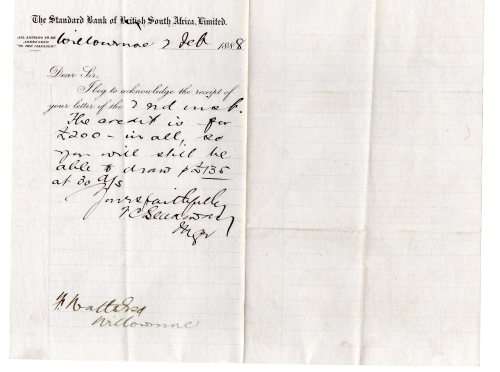 The Standard Bank of British South Africa, Limited.
ALL LETTERS TO BE
ADDRESSED
"TO THE MANAGER"
Willowmore 7 Feb 1888
Dear Sir,
I beg to acknowledge the receipt of
your letter of the 2nd inst.
The credit is for
£200 - in all, so
you will still be
able to draw £135
at 30 d/s
Yours faithfully
Mgr
Willowmore